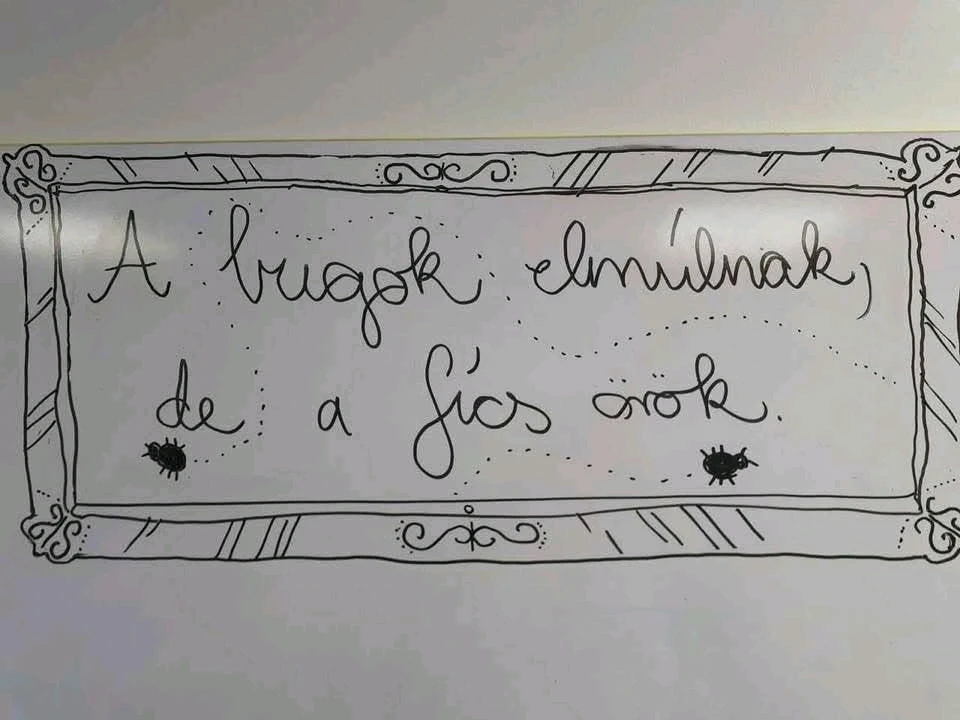 A bugok elmúlnak,
de a fícs örök.